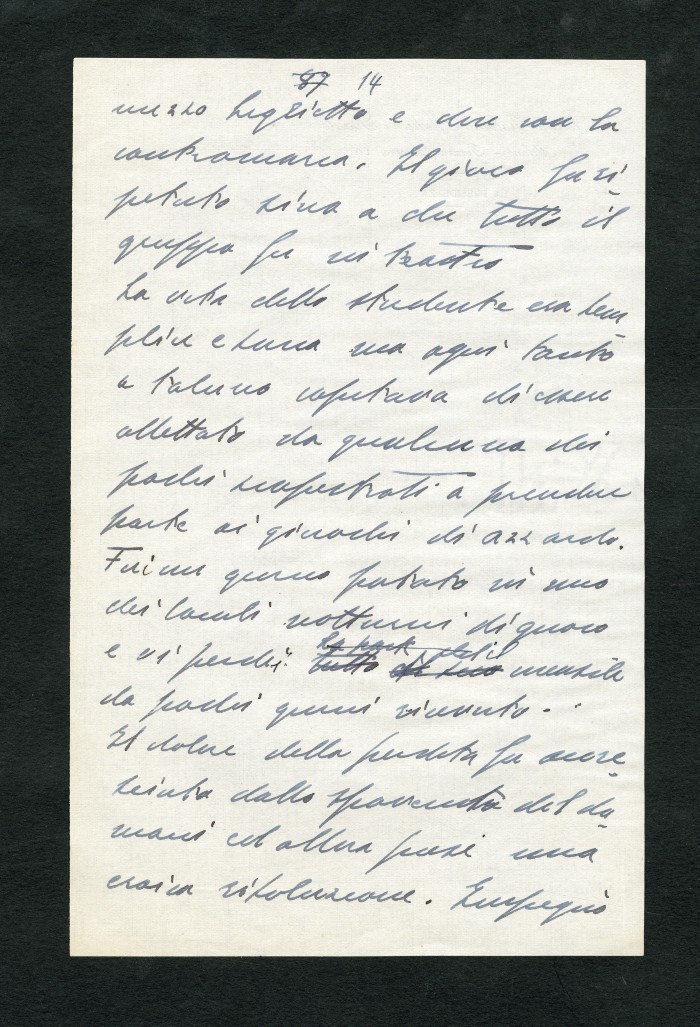 87 14
mezzo biglietto e due con la
contromarca. Il gioco fu ri
petuto sino a che tutto il
gruppo fu in teatro
La vita dello studente era sem
plice e sana ma ogni tanto
a taluno capitava di essere
allettato da qualcuno dei
pochi scapestrati a prendere
parte ai giuochi di azzardo.
Fui un giorno portato in uno
dei locali notturni di giuoco
e vi perdei la parte del
tutto il mio mensile
da pochi giorni ricevuto.
Il dolore della perdita fu accre
sciuto dallo spavento del do
mani ed allora presi una
eroica risoluzione. Impegnò